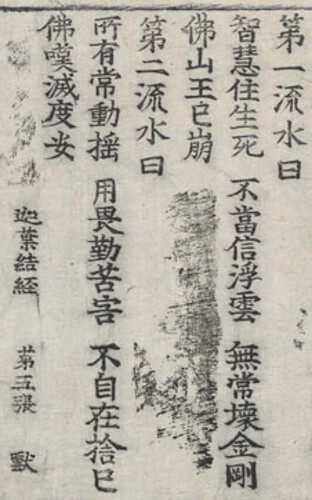 第一流水曰
智慧住生死　不當信浮雲　無常壞金剛
佛山王已崩
第二流水曰
所有常動揺　用畏勤苦害　不自在捨已
佛嘆滅度安
迦葉結經　第五張　獸